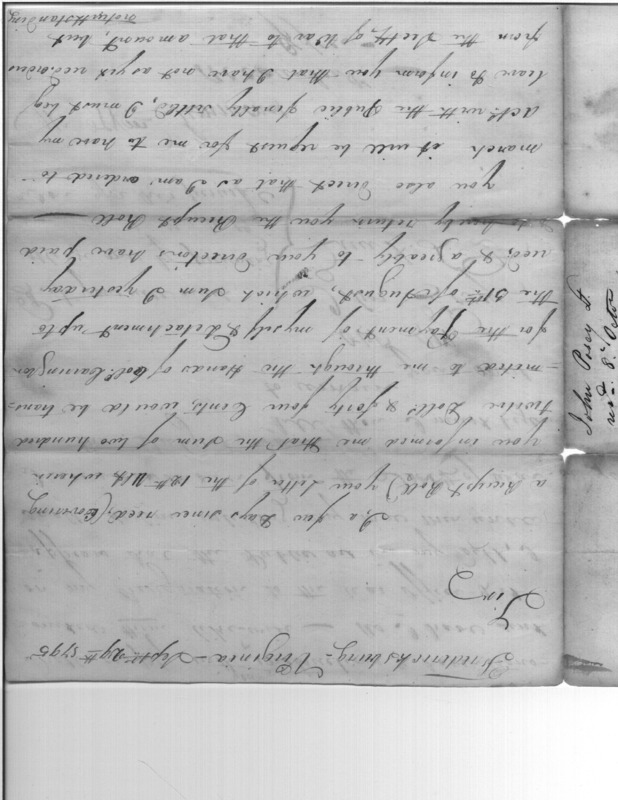 Fredericksburg - Virginia - Sept. 29th 1795
Sir
I, a few days since recd. (Covering
a Receipt Roll) your letter of the 12th Ult. wherein
you informed me that the sum of two hundred
twelve Doll. & forty four Cents, would be trans=
=mitted to me through the Hands of Col. Carrington
for the Payment of myself & detachment up to
the 31st of August, which sum I yesterday
recd. & agreeably to your directions have paid
& do hereby return you the Receipt Roll
You also direct that as I am ordered to
march it will be requisit for me to have my
Acct. with the Public finally settled, I must beg
leave to inform you that I have not as yet recd. orders
from the Secty. of War to that amount, but
notwithstanding
John Posey Lt
recd. 8. Octor